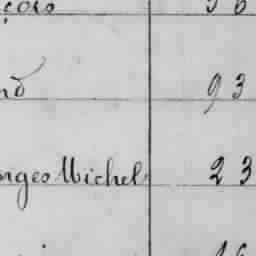 çois 56
nd 93
nges Michel 23